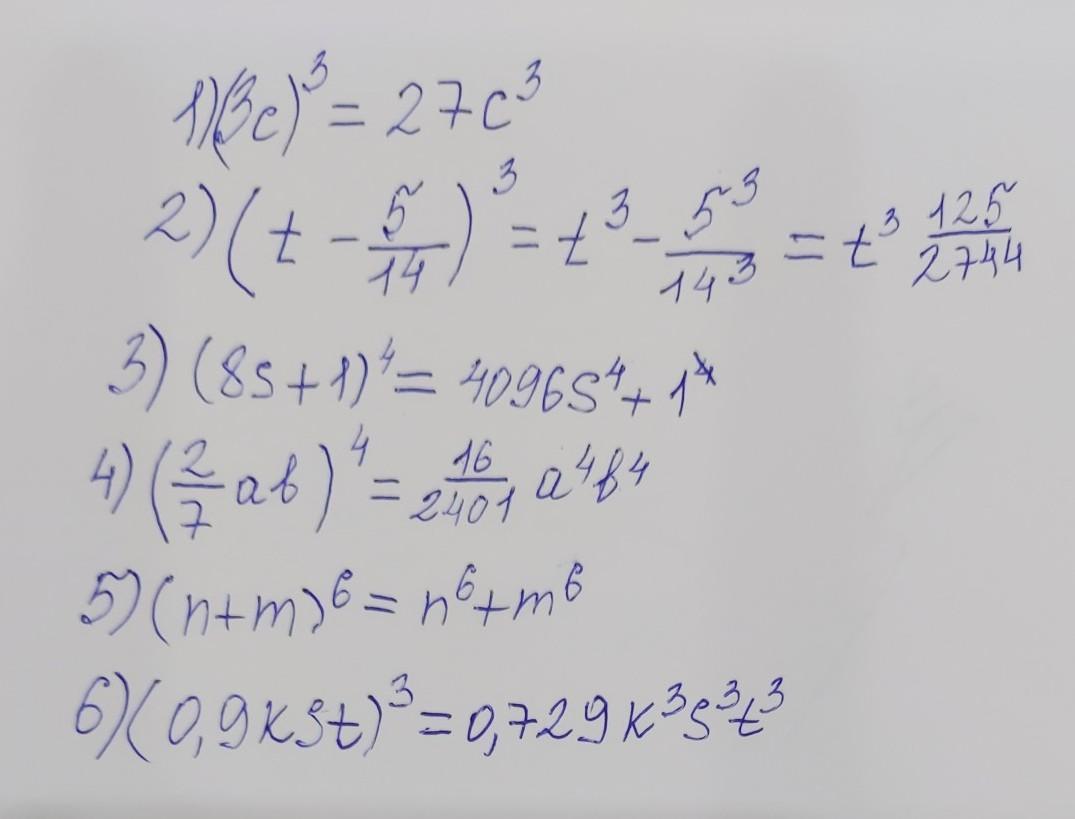 1)(3c)³ = 27c³
2) (t - 5/14)³ = t³ - 5³/14³ = t³ 125/2744
3) (8s+1)⁴ = 4096s⁴ + 1⁴
4) (2/7 ab)⁴ = 16/2401 a⁴b⁴
5) (n+m)⁶ = n⁶+m⁶
6) (0,9kst)³ = 0,729k³s³t³